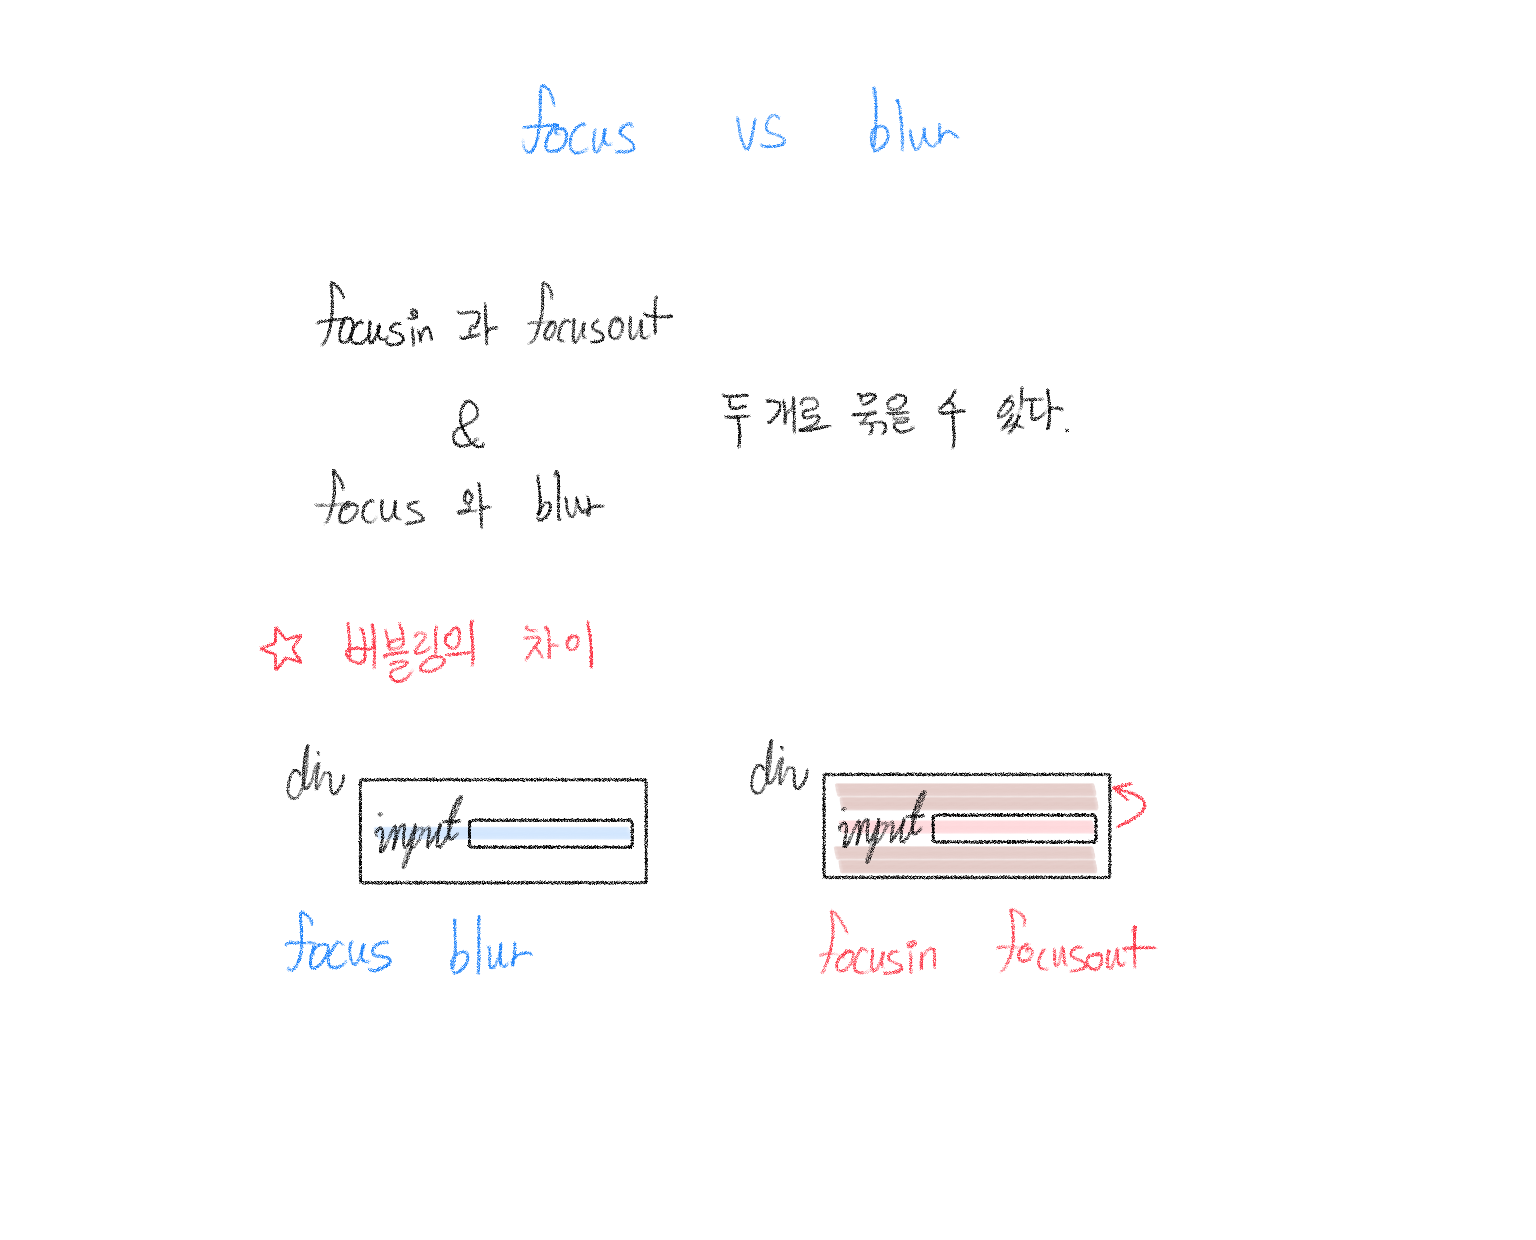 focus vs blur
focusin 과 focusout
&
두 개로 묶을 수 있다.
focus 와 blur
☆ 버블링의 차이
div
input
div
input
focus blur
focusin focusout